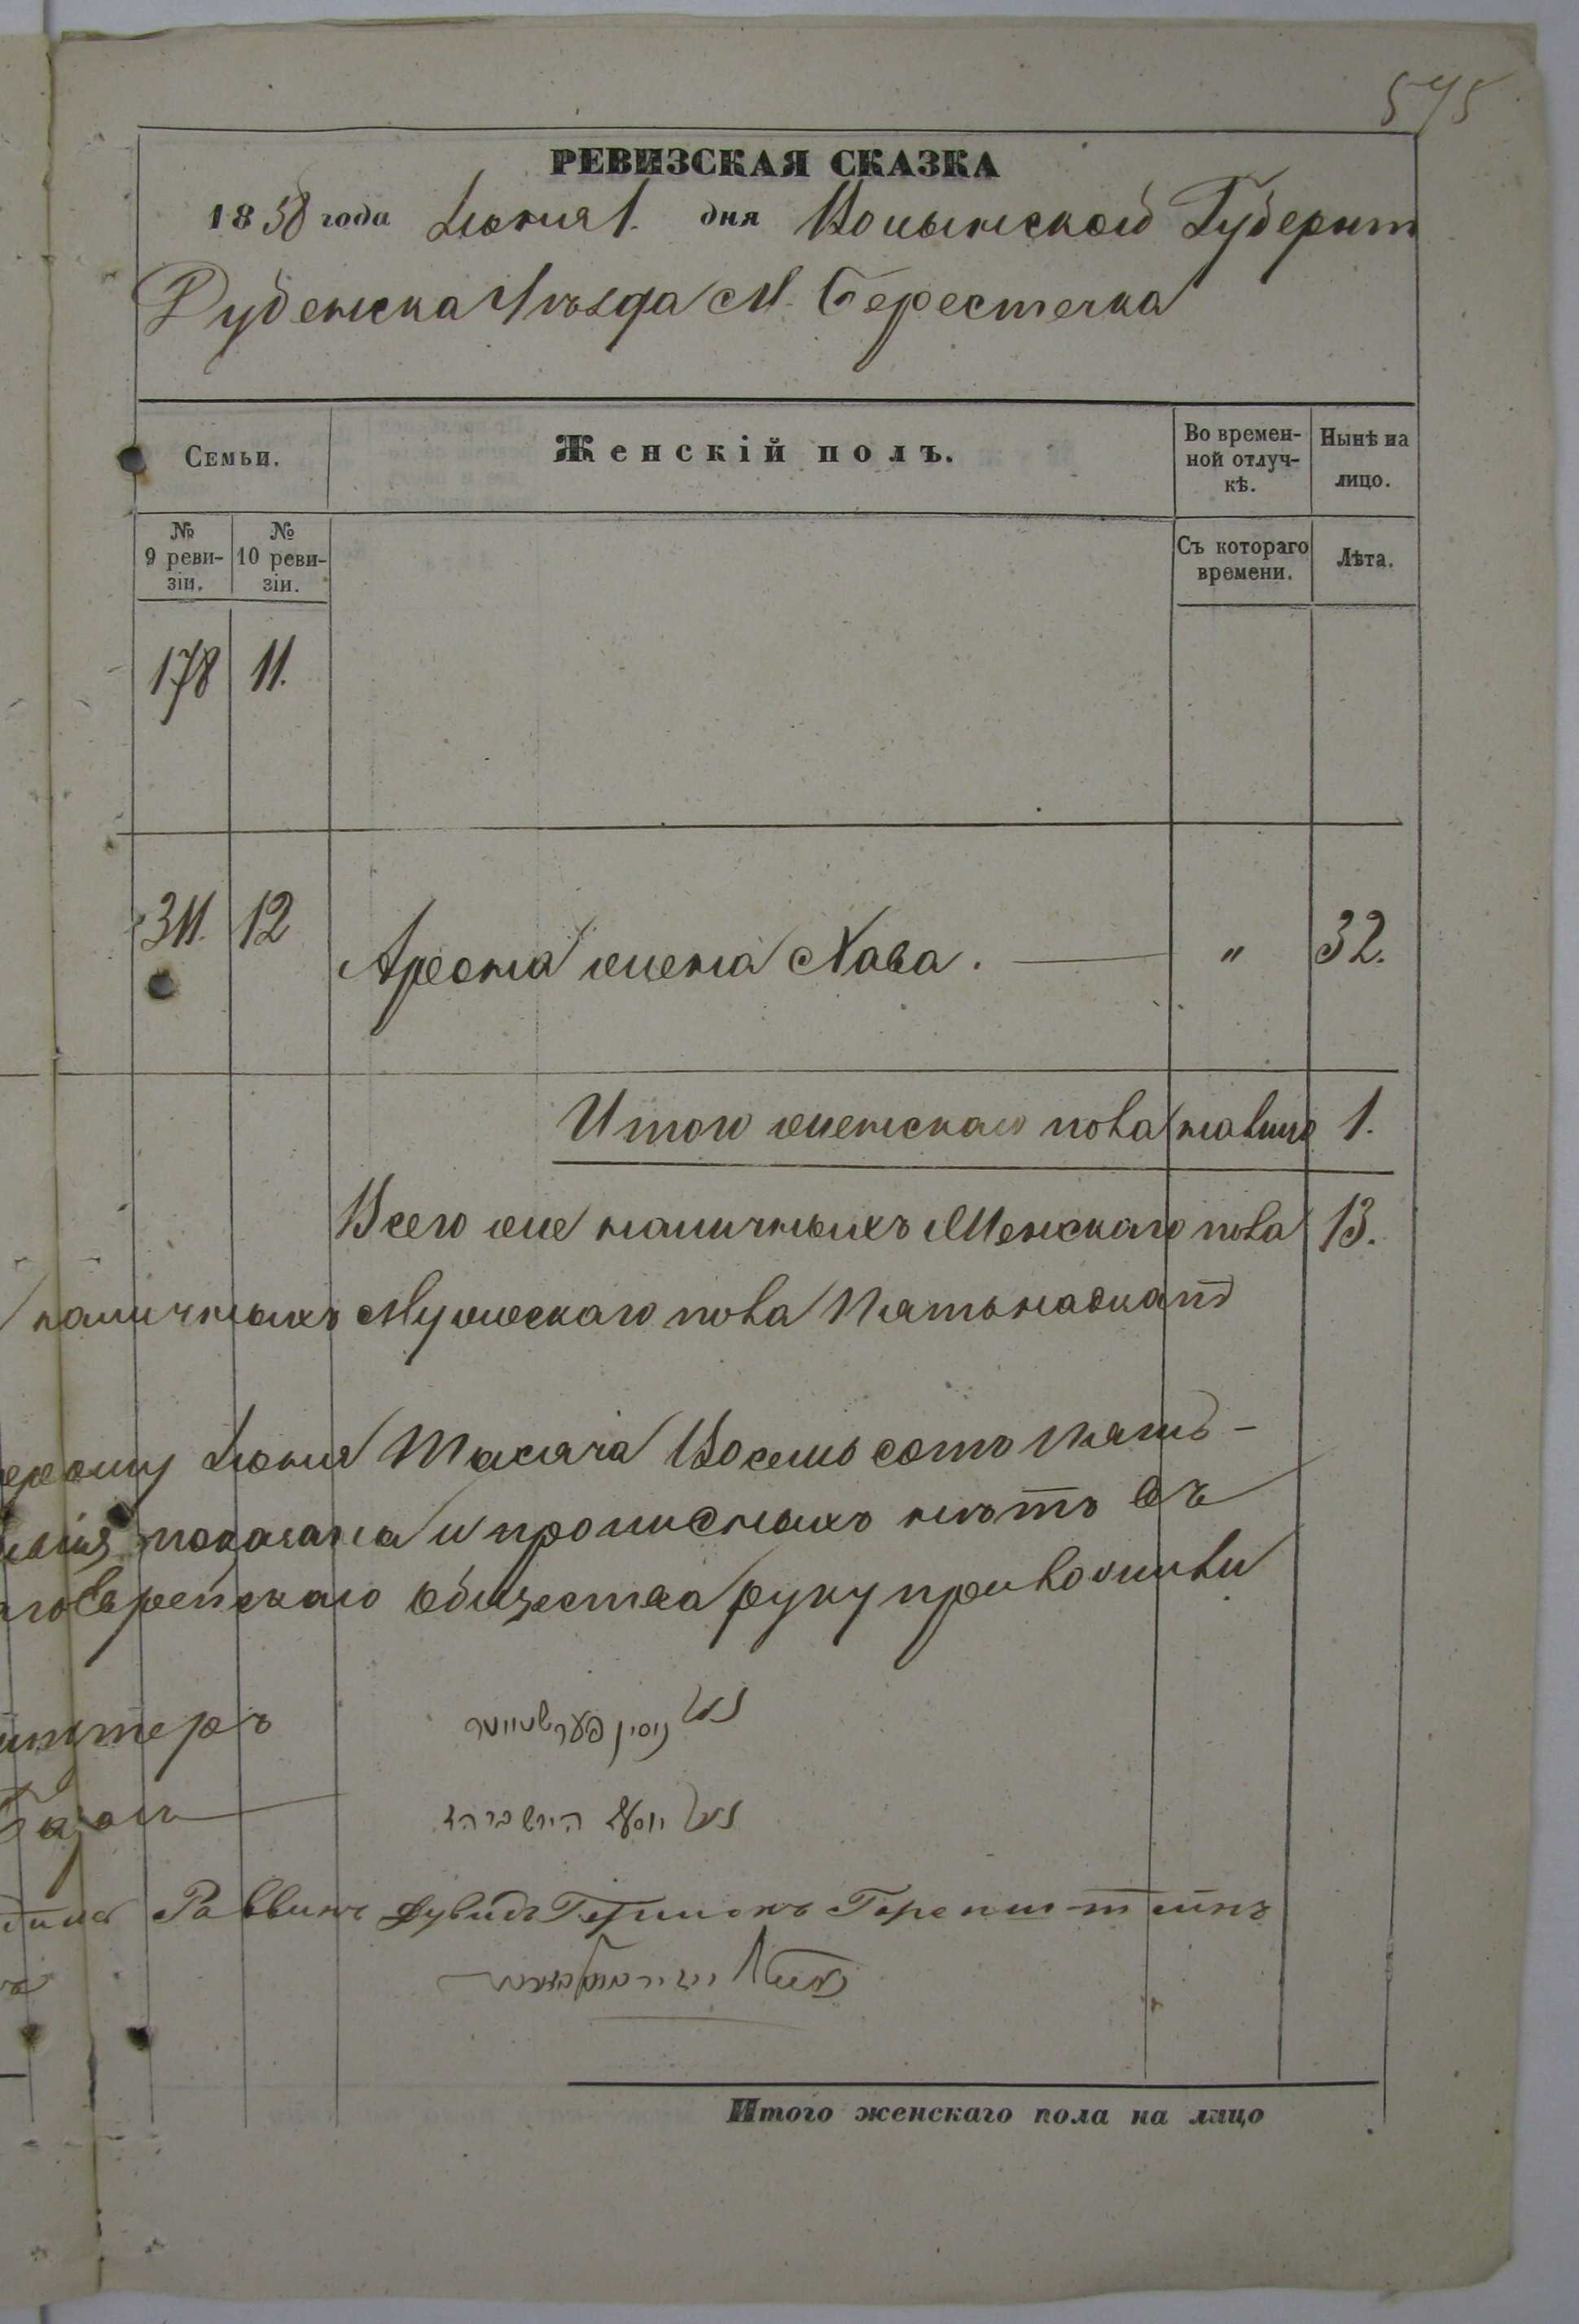 575
РЕВИЗСКАЯ СКАЗКА
1858 года Июня 1. дня Волынской Губерніи
Дубенска Уѣзда М. Берестечка
Семьи.
Женскій полъ.
Во времен-
ной отлуч-
кѣ.
Нынѣ на
лицо.
№
9 реви-
зіи.
№
10 реви-
зіи.
Съ котораго
времени.
Лѣта.
178 11.
311. 12 Арона жена Хава. — " 32.
Итого женскаго пола на лицо 1.
Всего же наличныхъ Женскаго пола 13.
наличныхъ Мужескаго пола Пятьнадцать
Июня Тысяча Восемь сотъ Пять-
показана и прописныхъ нѣтъ въ
Еврейскаго общества руку приложили
נאם
נאם יוסף
Раввинъ Дувидъ Гершонъ
Итого женскаго пола на лицо